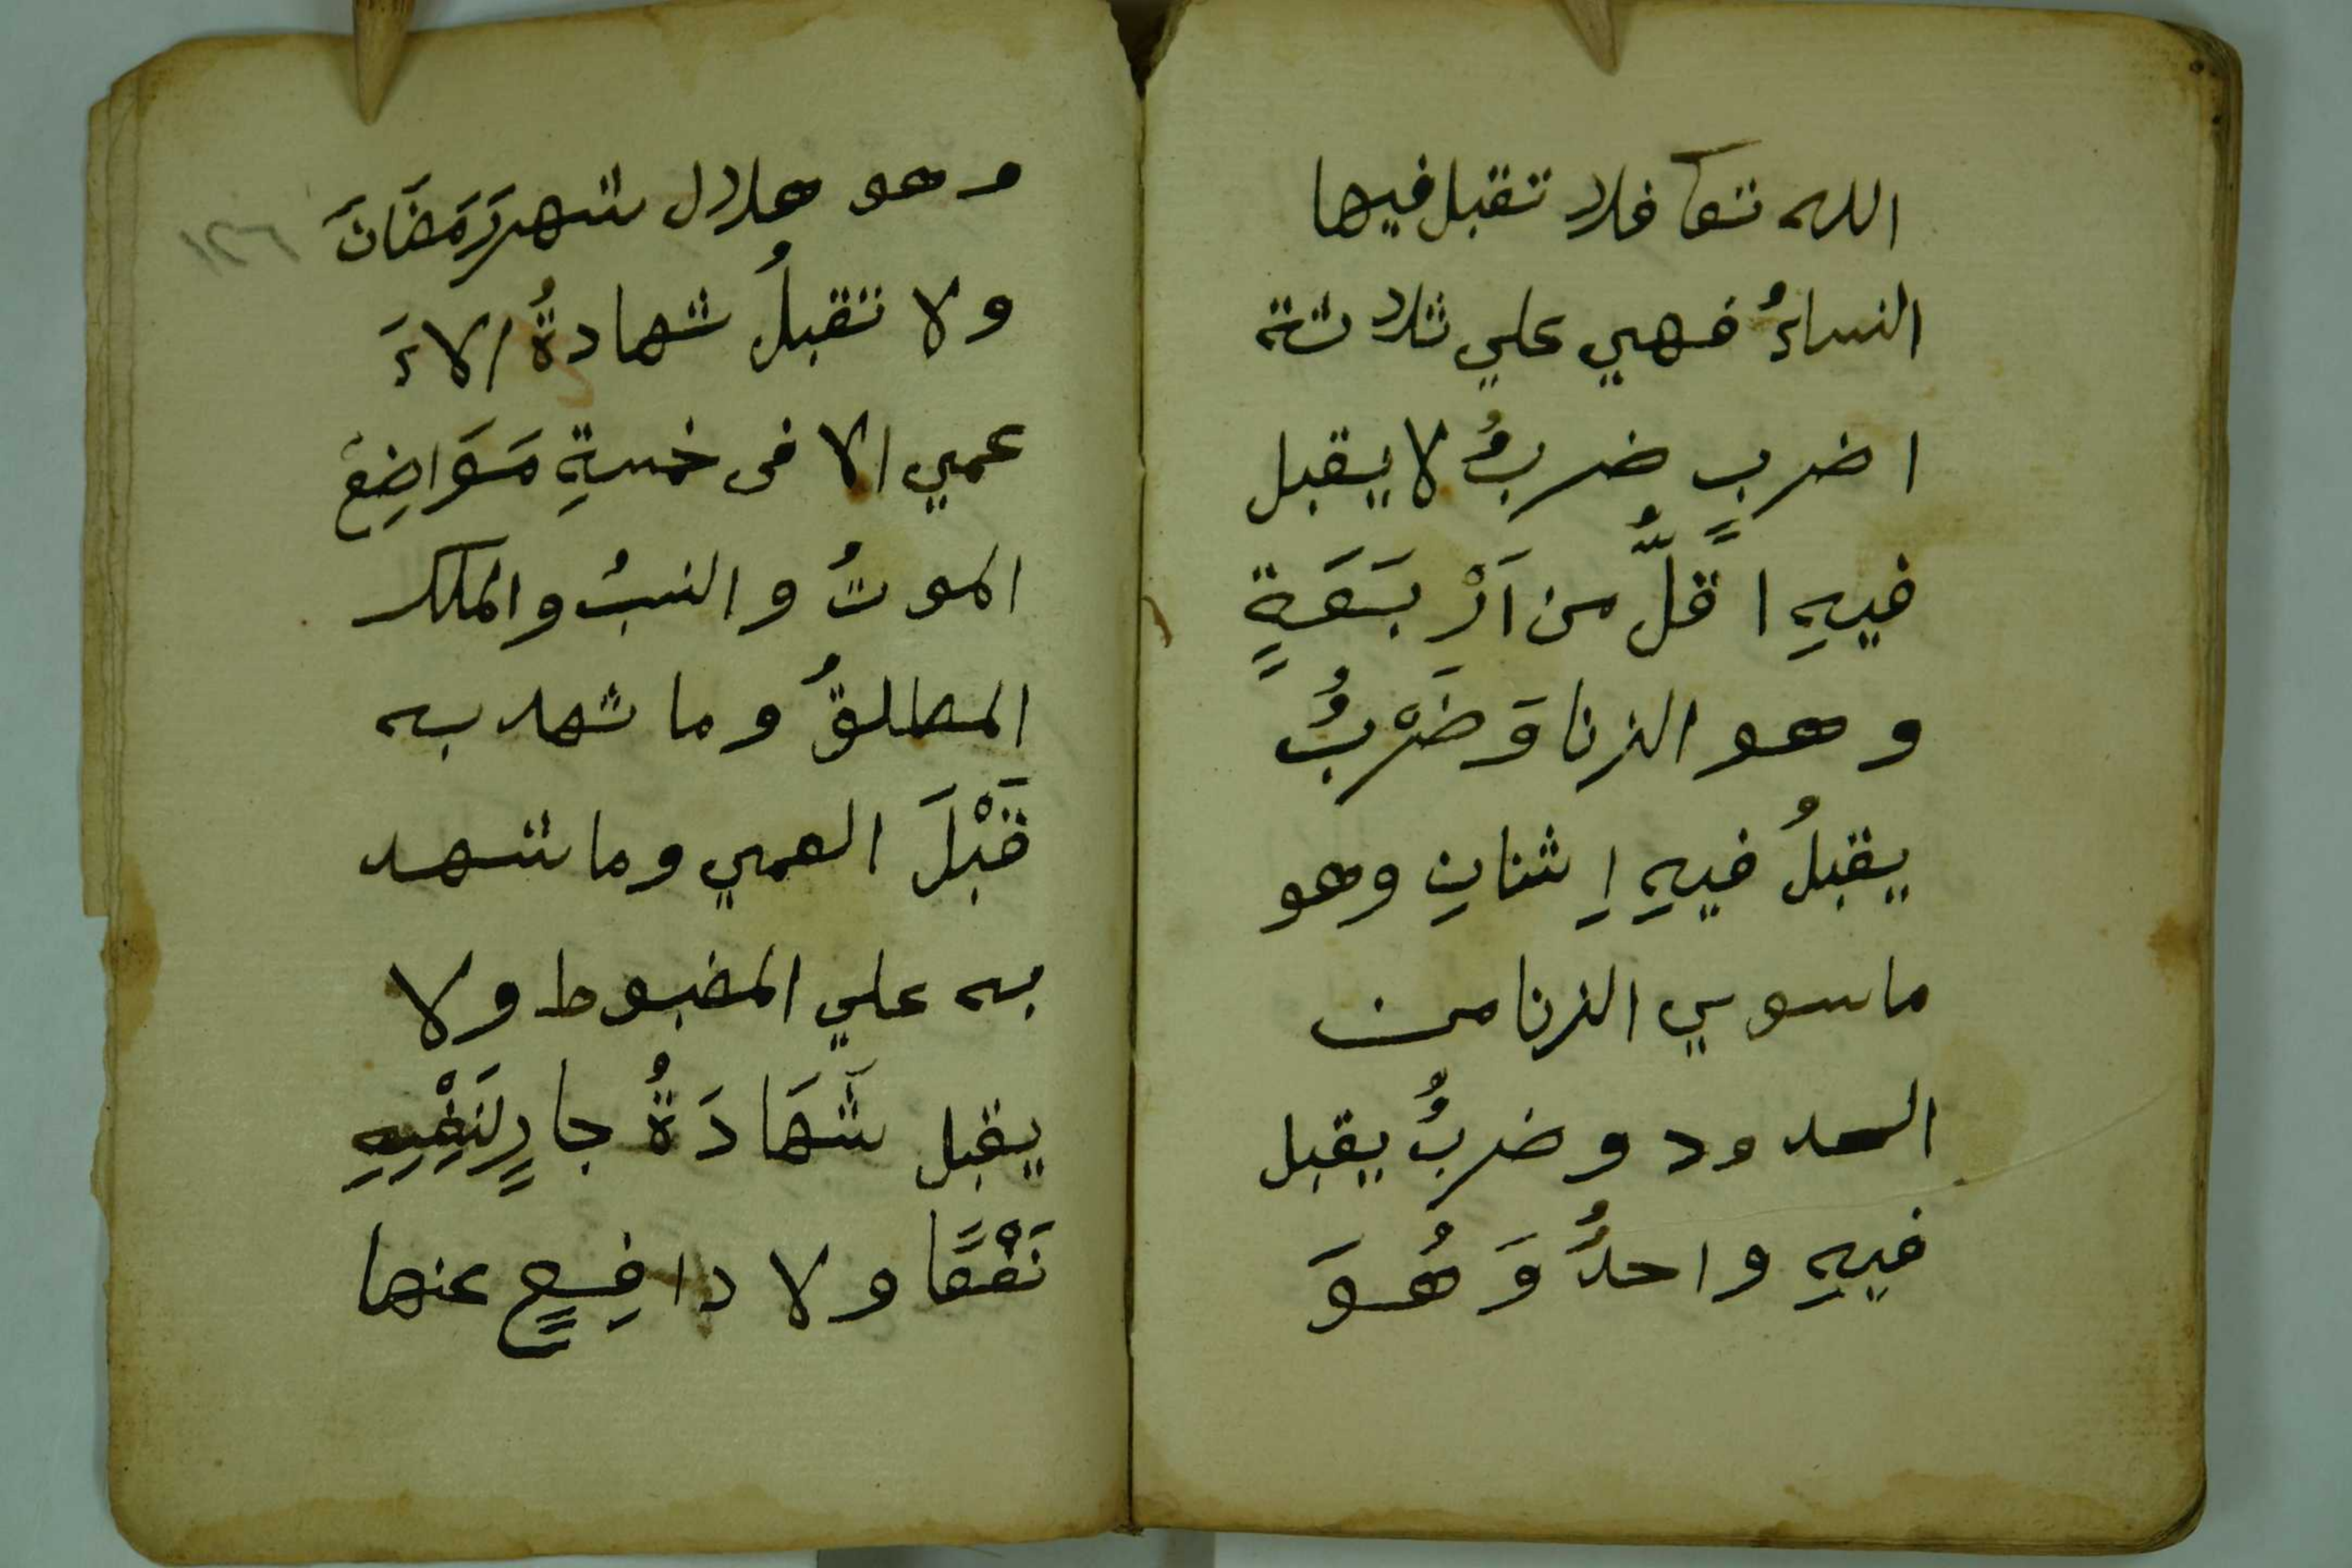 الله تعا فلا تقبل فيها
النساءُ فهي علي ثلاثة
اضربٍ ضربٌ لا يقبل
فيهِ اقلُّ من اَرْبَعَةٍ
وهو الزنا وَضَرْبٌ
يقبلُ فيهِ اِثنانِ وهو
ما سوي الزنا من
الحدود وضربٌ يقبل
فيهِ واحدٌ وَهُوَ
وهو هلال شهر رَمَضَانَ
ولا تقبلُ شهادةُ الاءَ
عمي الا في خمسةِ مَوَاضِعَ
الموتُ والنسبُ والملك
المطلقُ وما شهد به
قَبْلَ العمي وما شهد
به علي المضبوط ولا
يقبل شَهَادَةُ جارٍ لِنَفْسِهِ
نَفْعًا ولا دافِعٍ عنها
١٢٦